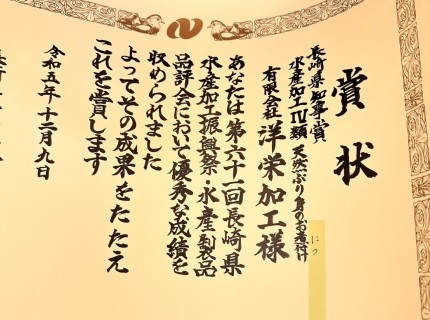 賞状
長崎県知事賞
水産加工Ⅳ類 天然ぶり身のお煮付け
につ
有限会社 洋栄加工様
あなたは第六十一回長崎県
水産加工振興祭・水産製製品
品評会において優秀な成績を
収められました
よってその成果をたたえ
これを賞します
令和五年十二月九日